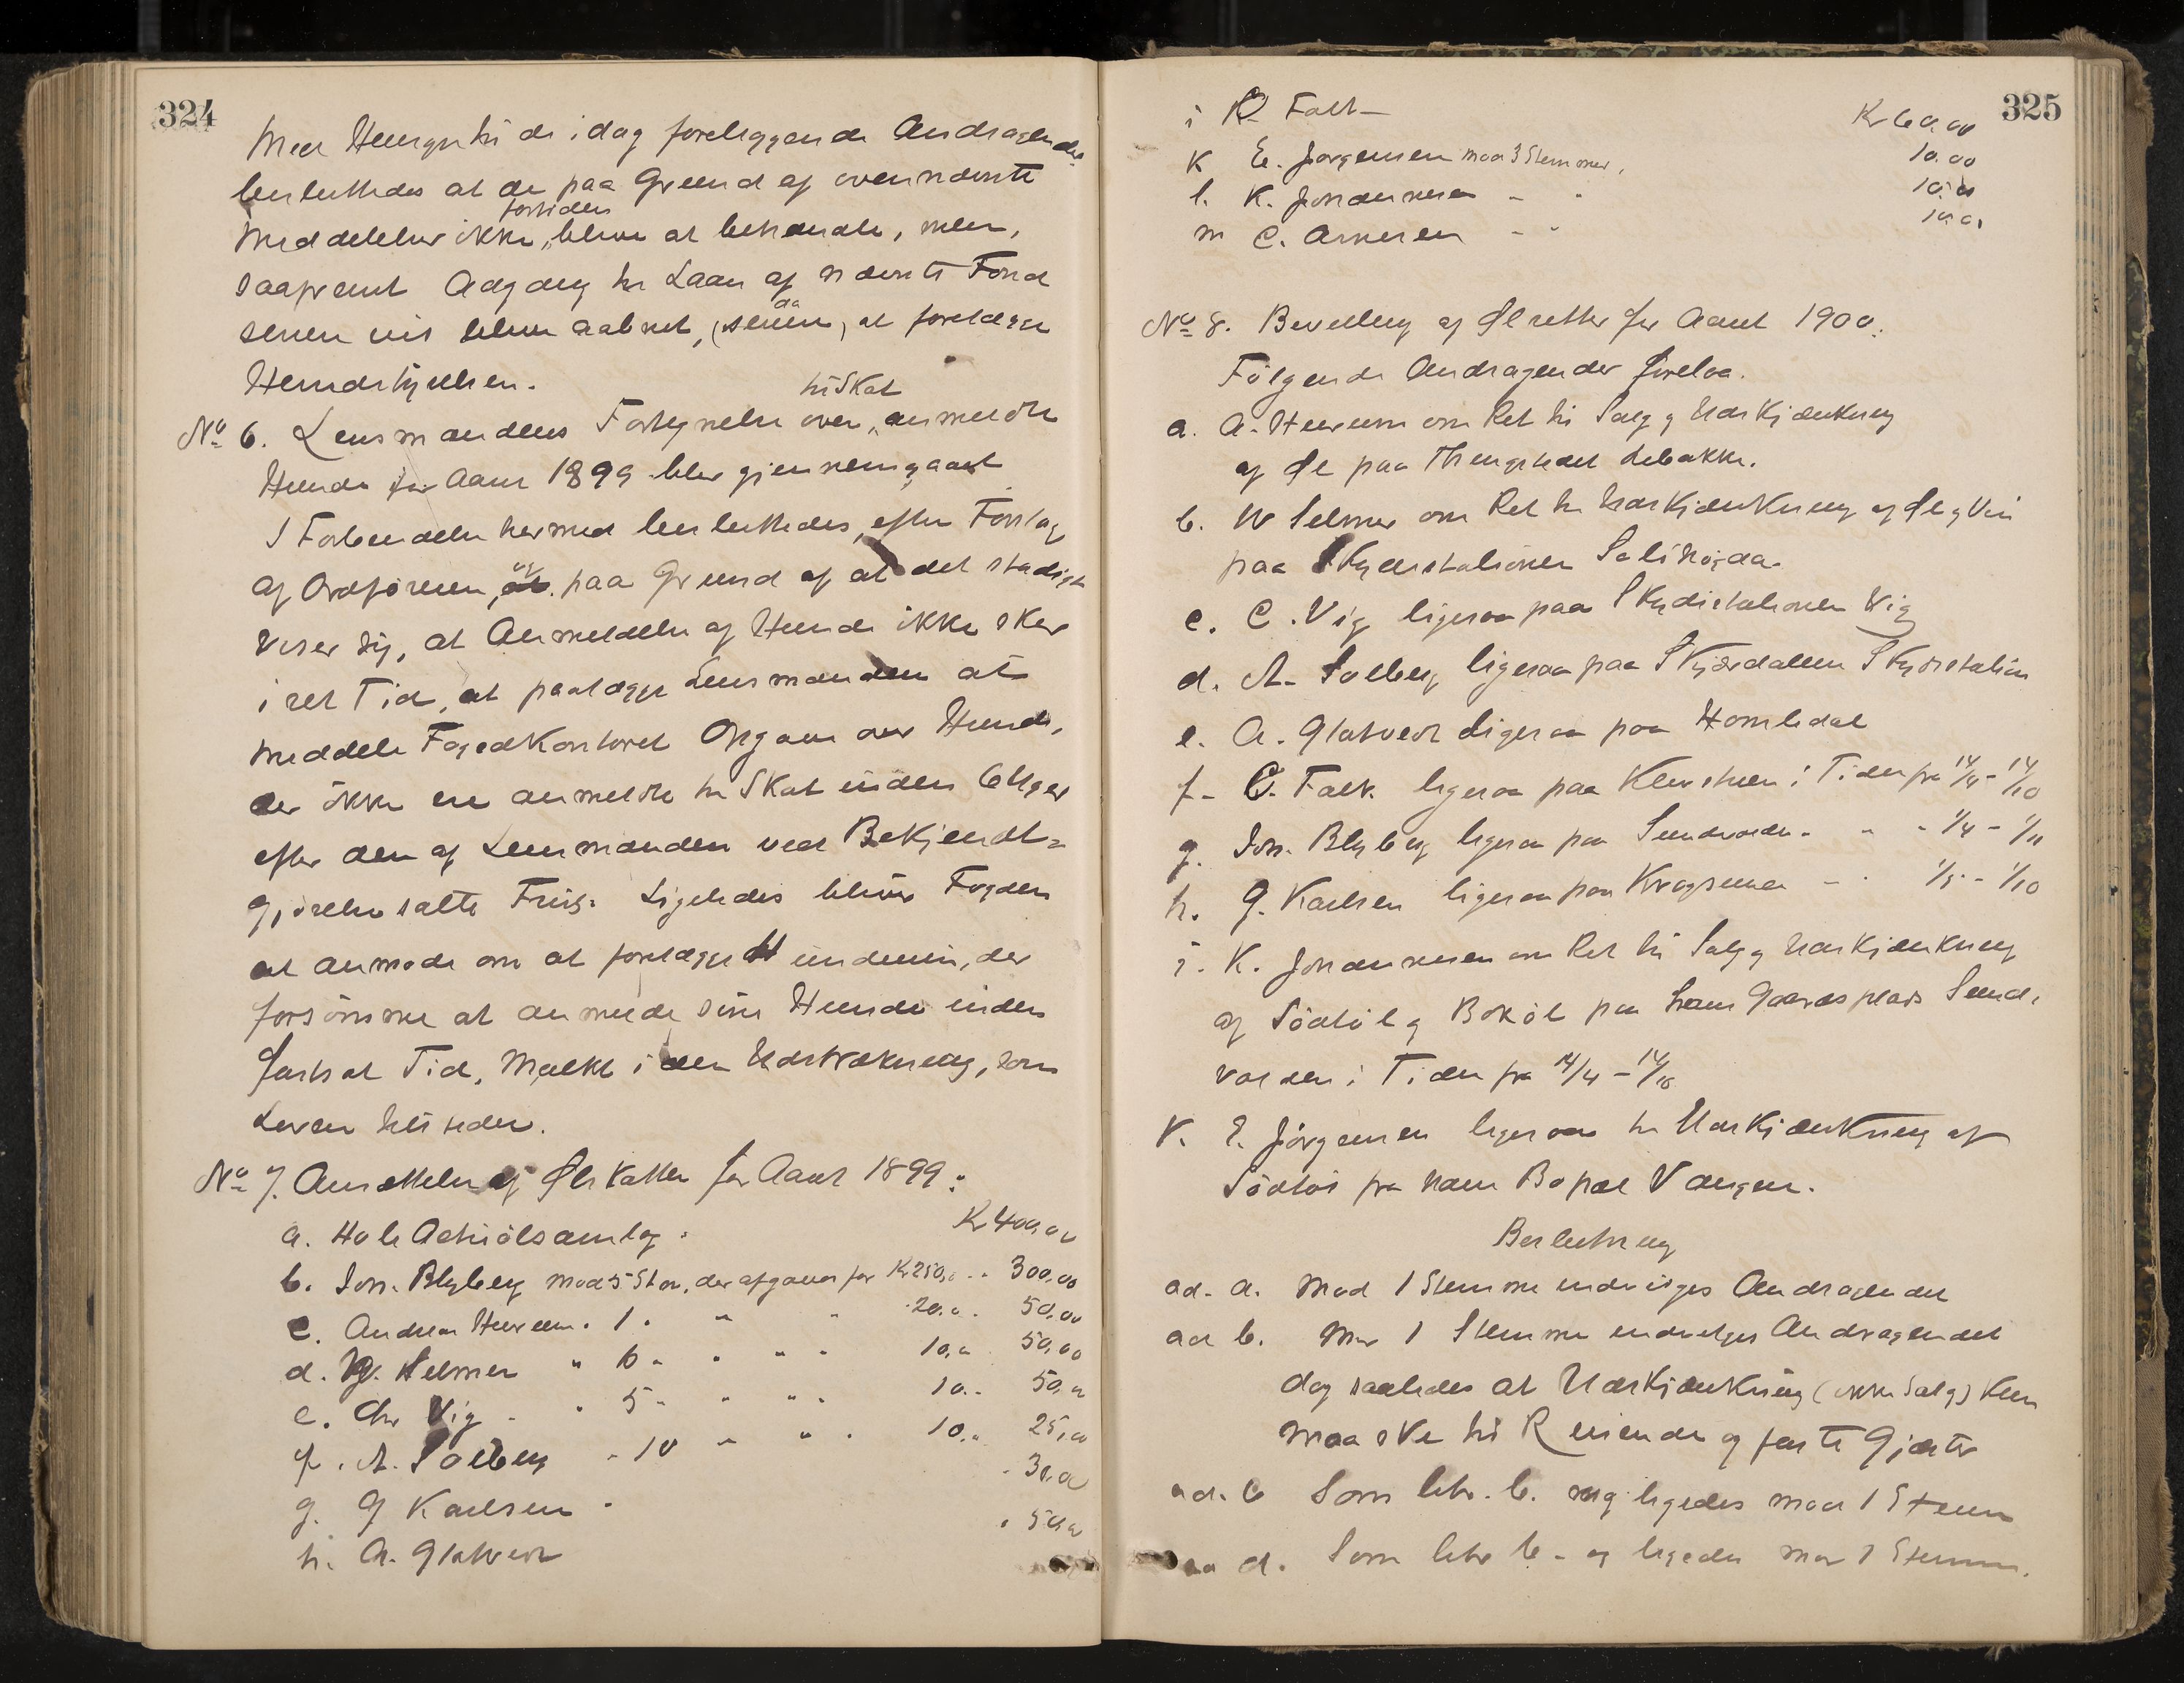 324
Med Hensyn til de idag foreliggende Andragender
besluttedes at de paa Grund af ovennævnte
fortiden
Meddelelser ikke blive at behandle, men,
saafremt Adgang til Laan af nævnte Fond
da
senere vil blive aabnet, (senere) at forelægge
Herredsstyrelsen.
til Skat
No 6. Lensmandens Fortegnelse over anmeldte
Hunde for Aaret 1899 blev gjennemgaaet
I Forbindelse hermed besluttedes, efter Forslag
af Ordføreren, og paa Grund af at det stadigt
viser sig, at Anmeldelse af Hunde ikke sker
i ret Tid, at paalægge Lensmanden at
meddele Fogedkontoret Opgave over Hunde,
der ikke ere anmeldte til Skat inden 6 Uger
efter den af Lensmanden ved Bekjendt=
gjørelse satte Frist. Ligeledes bliver Fogden
at anmode om at forelægge enhver, der
forsømme at anmelde sine Hunde inden
fastsat Tid, Mulkt i den Udstrækning, som
Loven tilsteder.
No 7. Ansættelse af Ølskatten for Aaret 1899:
a. Hole Actieølsamlag . Kr 400,00
b. Joh. Blyberg mod 5 Stem, der afgaves for Kr 250,0 .. 300,00
c. Andreas Hurum . 1 . " " 20.. 50,00
d. W. Selmer " 6 " " " " 10,0 50,00
e. Chr Vig . " 5 " " " " 10.. 50,00
f. A. Solberg - 10 " " . 10.. 25,00
g. G Karlsen . - 30,00
h. A. Glatved . 50,00
325
i O. Falk — Kr 60,00
k E. Jørgensen mod 3 Stemmer, 10.00
l. K. Johannesen - " 10,00
m C. Arnesen - " 10,00
No 8. Bevilling af Ølretter for Aaret 1900.
Følgende Andragender forelaa.
a. A. Hurum om Ret til Salg og Udskjænkning
af Øl paa Thingstedet Libakke.
b. W Selmer om Ret til Udskjænkning af Øl og Vin
paa Skydsstationen Sollihøgda.
c. C. Vig ligesaa paa Skydsstationen Vig
d. A. Solberg ligesaa paa Skjærdalens Skydsstation
e. A. Glatved ligesaa paa Homledal
f. O. Falk ligesaa paa Klevstuen i Tiden fra 14/4 - 14/10
g. Joh. Blyberg ligesaa paa Sundvolden " " 1/4 - 1/11
h. G. Karlsen ligesaa paa Krogstuen - . 1/5 - 1/10
i. K. Johannesen om Ret til Salg og Udskjænkning
af Sødtøl og Bokøl paa hans Gaardsplads Sund-
volden i Tiden fra 14/4 - 14/10
k. E. Jørgensen ligesaa til Udskjænkning af
Sødtøl fra hans Bopæl Vangen.
Beslutning
ad. a. Mod 1 Stemme indvilges Andragendet
ad b. Mod 1 Stemme indvilges Andragendet
dog saaledes at Udskjænkning (ikke Salg) kun
maa ske til Reisende og faste Gjæster
ad. c Som litr. b. og ligeledes mod 1 Stemme
ad d. Som litr b - og ligeledes mod 1 Stemme.